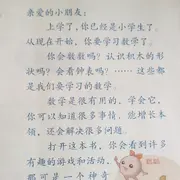 亲爱的小朋友：
上学了，你已经是小学生了。
从现在开始，你要学习数学了。
你会数数吗？认识积木的形
状吗？会看钟表吗？……这些都
是我们要学习的数学。
数学是很有用的，学会它，
你可以知道很多事情，能增长本
领，还会解决很多问题。
打开这本书，你会看到许多
有趣的游戏和活动，
都可是一个神奇